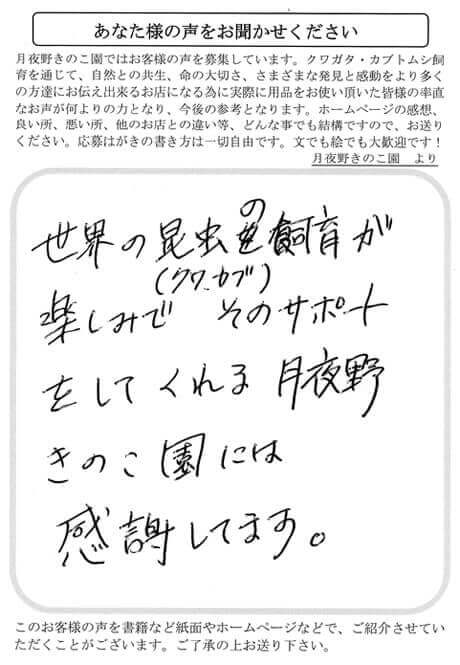 あなた様の声をお聞かせください
月夜野きのこ園ではお客様の声を募集しています。クワガタ・カブトムシ飼
育を通じて、自然との共生、命の大切さ、さまざまな発見と感動をより多く
の方達にお伝え出来るお店になる為に実際に用品をお使い頂いた皆様の率直
なお声が何よりの力となり、今後の参考となります。ホームページの感想、
良い所、悪い所、他のお店との違い等、どんな事でも結構ですので、お送り
ください。応募はがきの書き方は一切自由です。文でも絵でも大歓迎です！
月夜野きのこ園　より
世界の昆虫の飼育が
(クワ.カブ)
楽しみで　そのサポート
をしてくれる 月夜野
きのこ園には
感謝してます。
このお客様の声を書籍など紙面やホームページなどで、ご紹介させてい
ただくことがございます。ご了承の上お送り下さい。